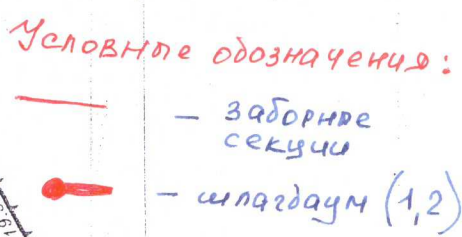 Условные обозначения:
— заборные
секции
— шлагбаум (1,2)